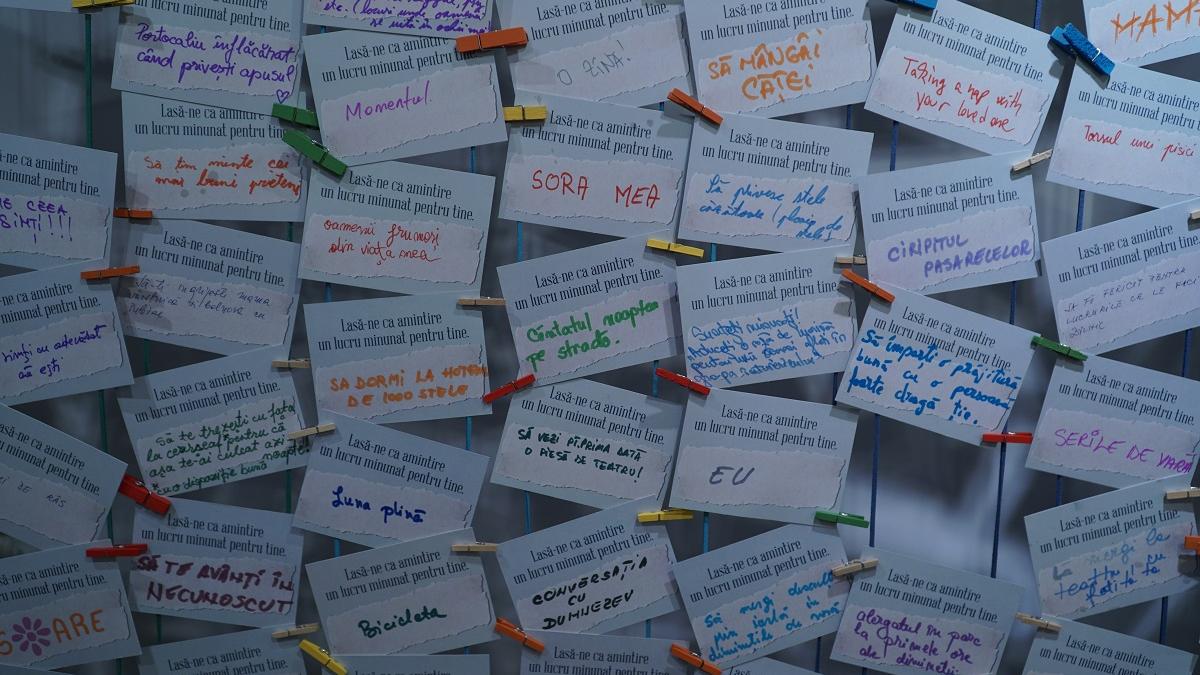 etc. (locuri unde oamenii
se uită în ochii mei
Portocaliu înflăcărat
când privești apusul
Lasă-ne ca amintire
un lucru minunat pentru tine.
Momentul.
Lasă-ne ca amintire
un lucru minunat pentru tine.
O ZINĂ!
Lasă-ne ca amintire
un lucru minunat pentru tine.
SĂ MÂNGÂI
CĂȚEI
Lasă-ne ca amintire
un lucru minunat pentru tine.
Taking a nap with
your loved one
MAM
Lasă-ne ca amintire
un lucru minunat pentru tine.
Torsul unei pisici
ca amintire
minunat pentru tine.
E CEEA
SIMȚI!!!
Lasă-ne ca amintire
un lucru minunat pentru tine
Să țin minte cei
mai buni prieteni
Lasă-ne ca amintire
un lucru minunat pentru tine.
oamenii frumoși
din viața mea
Lasă-ne ca amintire
un lucru minunat pentru tine.
SORA MEA
Lasă-ne ca amintire
un lucru minunat pentru tine.
Să privesc stele
căzătoare (ploaie de
stele)
Lasă-ne ca amintire
un lucru minunat pentru tine.
CIRIPITUL
PASARELELOR
Lasă-ne ca amintire
un lucru minunat pentru tine.
SĂ FII FERICIT PENTRU
LUCRURILE CE LE FACI
ZILNIC
ca amintire
minunat pentru tine.
simți cu adevărat
că ești
Lasă-ne ca amintire
un lucru minunat pentru tine.
Lasă-ne ca amintire
un lucru minunat pentru tine.
SA DORMI LA HOTEL
DE 1000 STELE
Lasă-ne ca amintire
un lucru minunat pentru tine.
Cântatul noaptea
pe stradă.
Lasă-ne ca amintire
un lucru minunat pentru tine.
Sunteți minunați!
Aduceți o rază de lumină
pentru
Lasă-ne ca amintire
un lucru minunat pentru tine.
Să împarți o prăjitură
bună cu o persoană
foarte dragă ție.
Lasă-ne ca amintire
un lucru minunat pentru tine.
SERILE DE VARĂ
Lasă-ne ca amintire
un lucru minunat pentru tine.
DE RÂS
Lasă-ne ca amintire
un lucru minunat pentru tine.
Să te trezești cu fața
la cearșaf pentru că
așa te-ai culcat azi noapte
cu o dispoziție bună
Lasă-ne ca amintire
un lucru minunat pentru tine.
Luna plină
Lasă-ne ca amintire
un lucru minunat pentru tine.
SĂ VEZI PT. PRIMA DATĂ
O PIESĂ DE TEATRU!
Lasă-ne ca amintire
un lucru minunat pentru tine.
EU
Lasă-ne ca amintire
un lucru minunat pentru tine.
mergi la
teatru cu
fetița ta
Lasă-ne ca amintire
un lucru minunat pentru tine.
ARE
Lasă-ne ca amintire
un lucru minunat pentru tine.
SĂ TE AVÂNȚI ÎN
NECUNOSCUT
Lasă-ne ca amintire
un lucru minunat pentru tine.
Bicicleta
Lasă-ne ca amintire
un lucru minunat pentru tine.
CONVERSAȚIA
CU
DUMNEZEU
Lasă-ne ca amintire
un lucru minunat pentru tine.
Să mergi desculț
prin iarbă în
diminețile de vară
Lasă-ne ca amintire
un lucru minunat pentru tine.
alergatul în parc
la primele ore
ale dimineții
Lasă-ne ca amintire
un lucru minunat pentru tine.
Lasă-ne ca amintire
Lasă-ne ca amintire
un lucru minunat pentru tine.